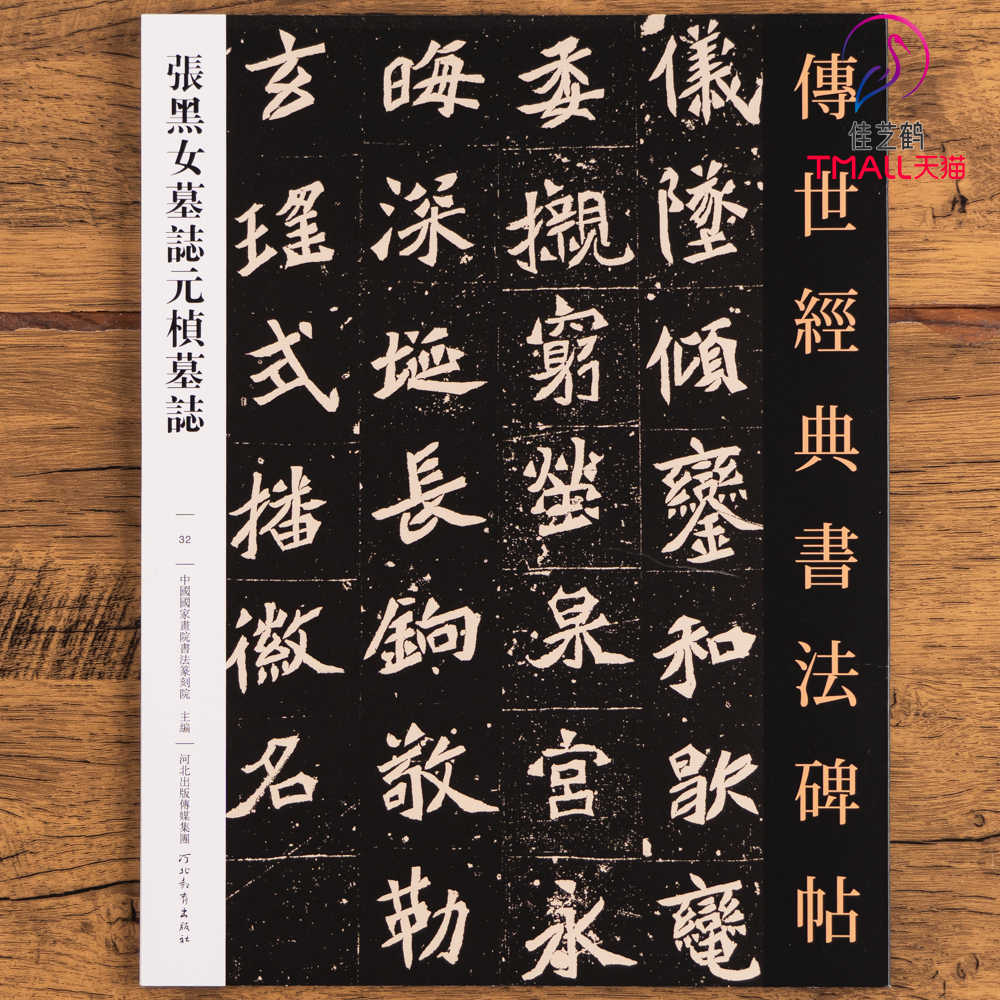 傳世經典書法碑帖
佳艺鹤
TMALL天猫
儀墜傾鑾和歇
委櫬窮塋泉宮永
晦深埏長銄敬勒
玄瑤式播徽名
張黑女墓誌元楨墓誌
32
中國國家畫院書法篆刻院 主編
河北出版傳媒集團
河北教育出版社